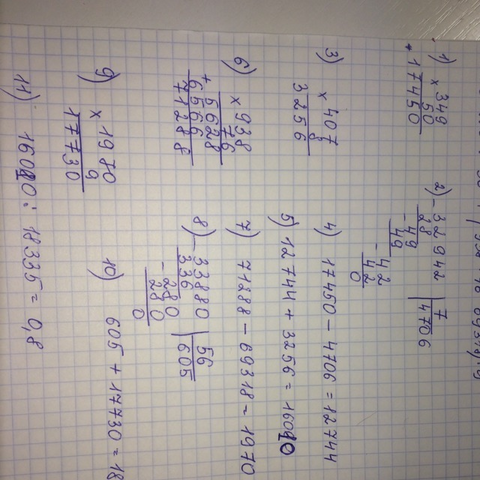 1) × 349
50
17450
2) - 32942 | 7
28 | 4706
- 49
49
- 42
42
0
3) × 407
8
3256
4) 17450 - 4706 = 12744
5) 12744 + 3256 = 16000
6) × 938
76
+ 5628
6566
71288
7) 71288 - 69318 = 1970
8) - 33880 | 56
336 | 605
- 280
280
0
9) × 1970
9
17730
10) 605 + 17730 = 18
11) 16000 : 18335 = 0,8